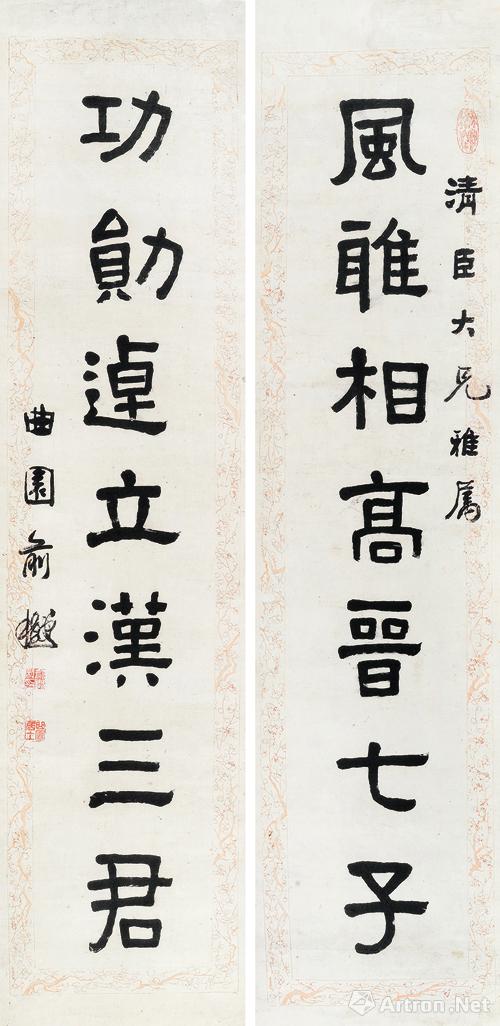 清臣大兄雅属
風雅相高晉七子
功勛逴立漢三君
曲園俞樾
Artron.Net